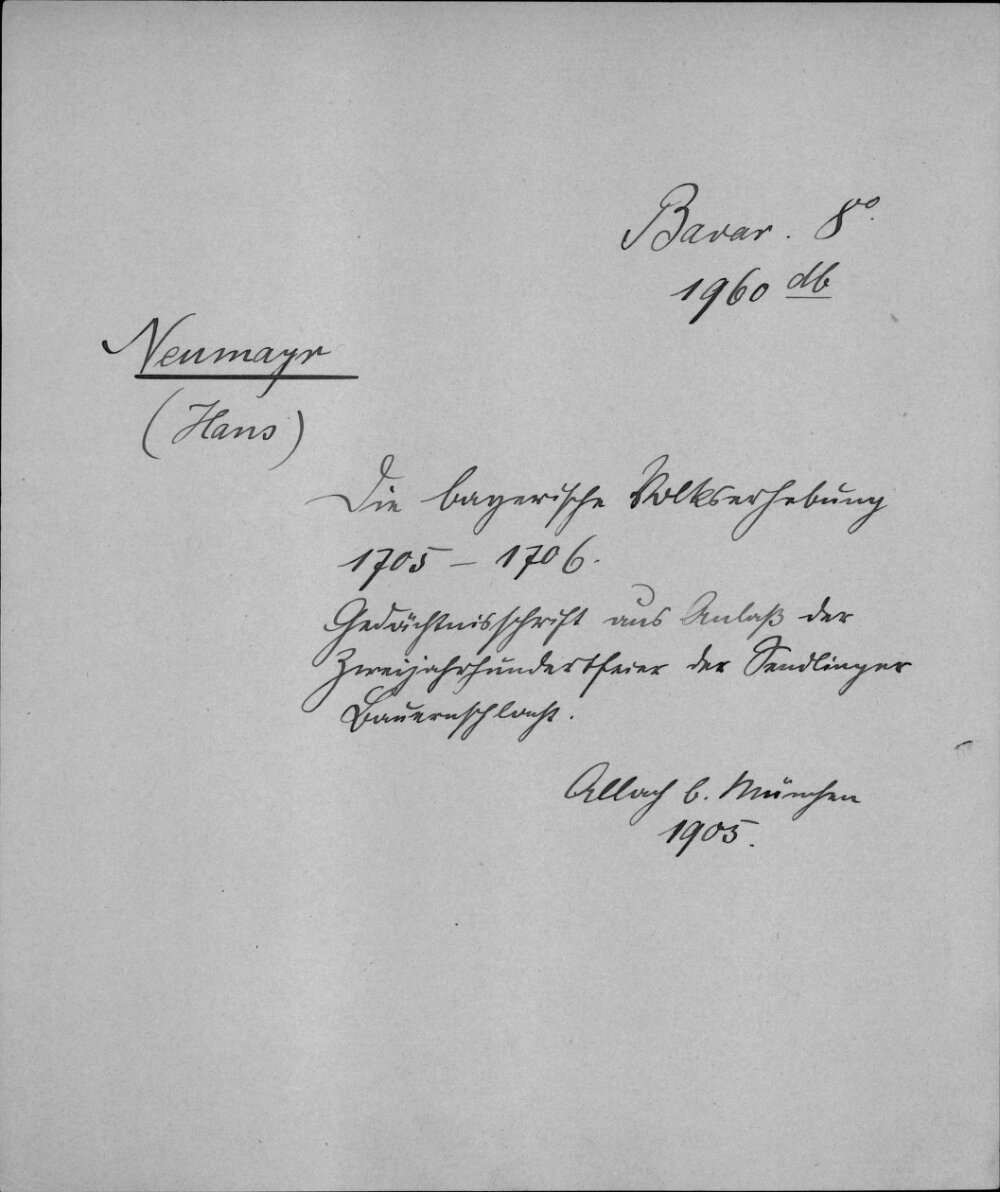 Bavar. 8°.
1960 db
Neumayr
(Hans)
Die bayerische Volkserhebung
1705 – 1706.
Gedächtnisschrift aus Anlaß der
Zweijahrhundertfeier der Sendlinger
Bauernschlacht.
Allach b. München
1905.